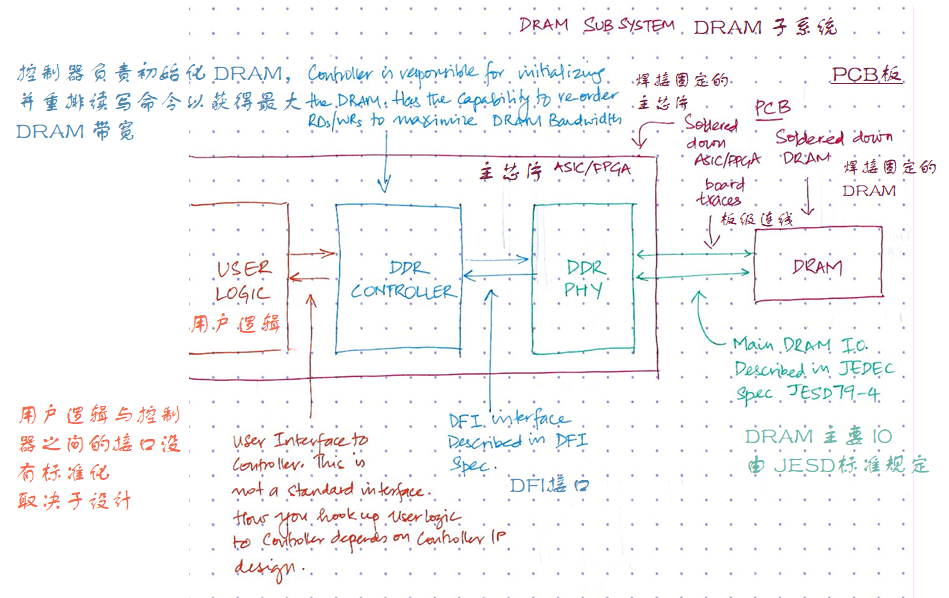 DRAM SUBSYSTEM DRAM 子系统
控制器负责初始化 DRAM,
并重排读写命令以获得最大
DRAM 带宽
Controller is responsible for initializing
the DRAM. Has the capability to re-order
RDs/WRs to maximize DRAM Bandwidth
焊接固定的
主芯片
PCB板
PCB
Soldered
down
ASIC/FPGA
Soldered down
DRAM
焊接固定的
DRAM
board
traces
板级连线
主芯片 ASIC/FPGA
USER
LOGIC
用户逻辑
DDR
CONTROLLER
DDR
PHY
DRAM
Main DRAM I.O.
Described in JEDEC
Spec JESD79-4
DRAM 主要 IO
由 JESD标准规定
用户逻辑与控制
器之间的接口没
有标准化
取决于设计
User Interface to
Controller. This is
not a standard interface.
How you hook up User logic
to Controller depends on Controller IP
design.
DFI interface
Described in DFI
Spec.
DFI接口